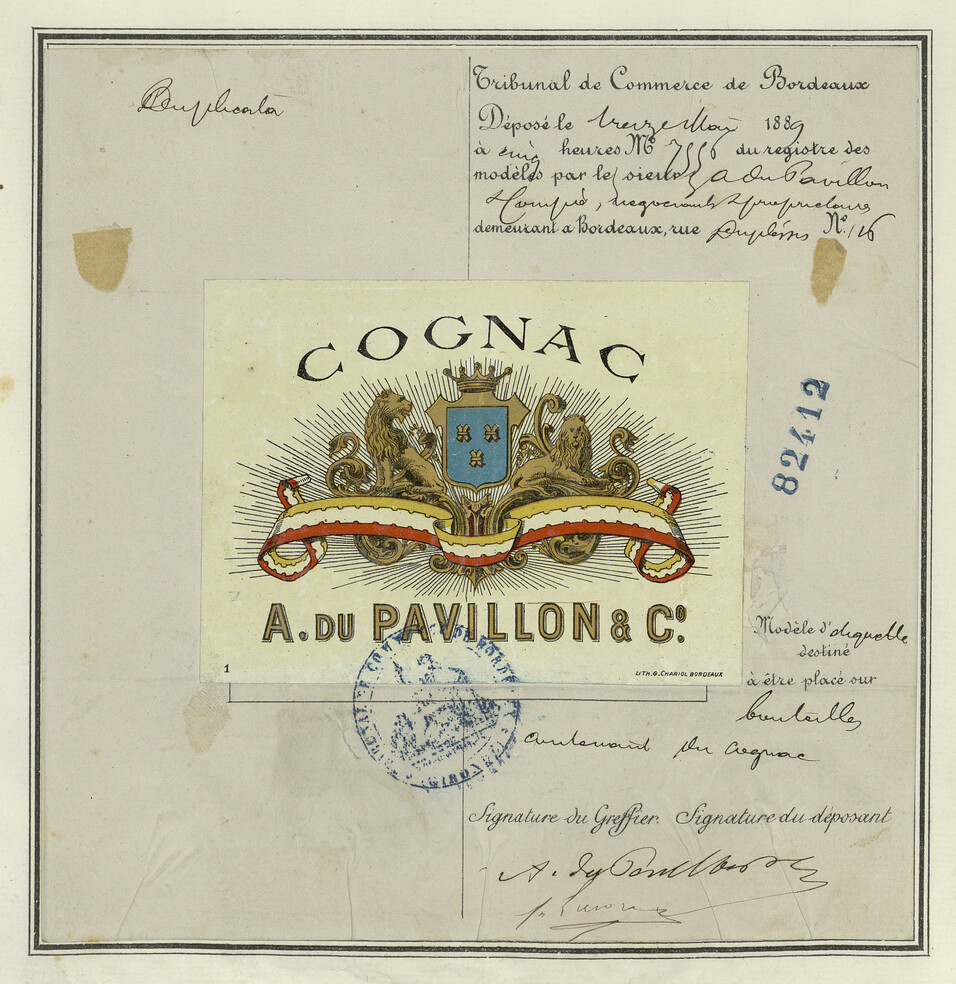 Duplicata
Tribunal de Commerce de Bordeaux
Déposé le treize Mai 1889
à cinq heures No 7556 du registre des
modèles par le sieur A du Pavillon
& Compie, négociants & propriétaires
demeurant à Bordeaux, rue Duplessis No. 16
COGNAC
82412
A. DU PAVILLON & Co.
1
LITH. G. CHARIOL BORDEAUX
Modèle d'étiquette
destiné
à être placé sur
bouteilles
contenant du cognac
Signature du Greffier. Signature du déposant